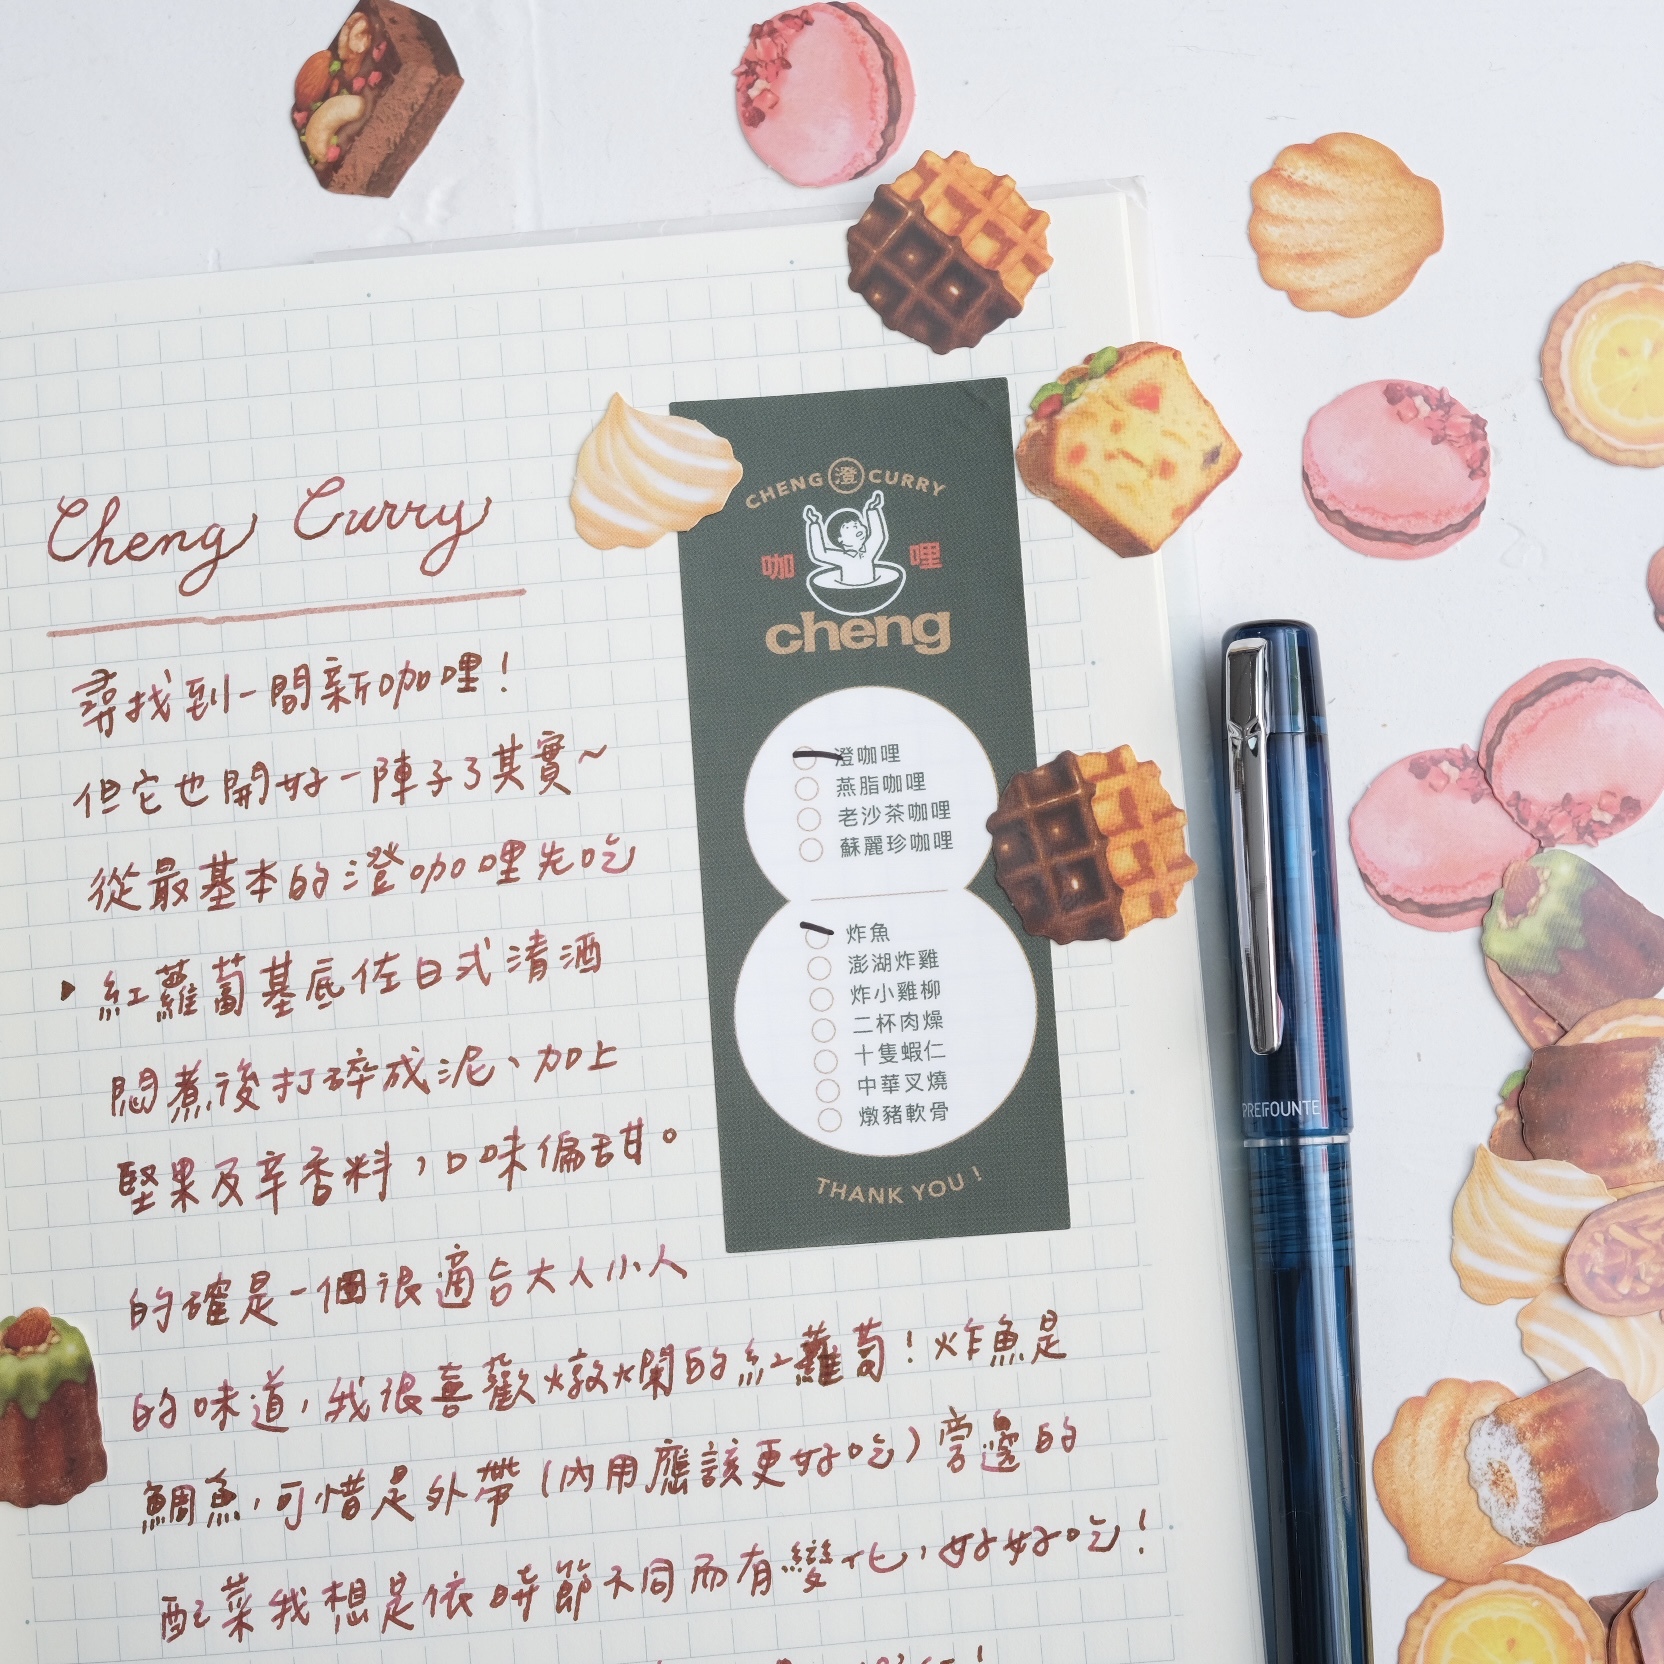 Cheng Curry
尋找到一間新咖哩！
但它也開好一陣子了其實~
從最基本的澄咖哩先吃
紅蘿蔔基底佐日式清酒
悶煮後打碎成泥、加上
堅果及辛香料，口味偏甜。
的確是一個很適合大人小人
的味道，我很喜歡燉爛的紅蘿蔔！炸魚是
鯛魚，可惜是外帶(內用應該更好吃)旁邊的
配菜我想是依時節不同而有變化，好好吃！
CHENG 澄 CURRY
咖哩
cheng
澄咖哩
燕脂咖哩
老沙茶咖哩
蘇麗珍咖哩
炸魚
澎湖炸雞
炸小雞柳
二杯肉燥
十隻蝦仁
中華叉燒
燉豬軟骨
THANK YOU!
PREFOUNTE